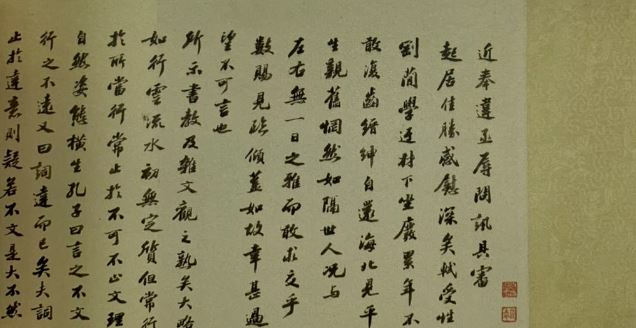 近奉違亟辱問訊具審
起居佳勝感慰深矣軾受性
剛簡學迂材下坐廢累年不
敢復齒縉紳自還海北見平
生親舊惘然如隔世人況與
左右無一日之雅而敢求交乎
數賜見臨傾蓋如故幸甚過
望不可言也
所示書教及雜文觀之熟矣大略
如行雲流水初無定質但常行
於所當行常止於不可不止文理
自然姿態橫生孔子曰言之不文
行之不遠又曰詞達而已矣夫詞
止於達意則疑若不文是大不然